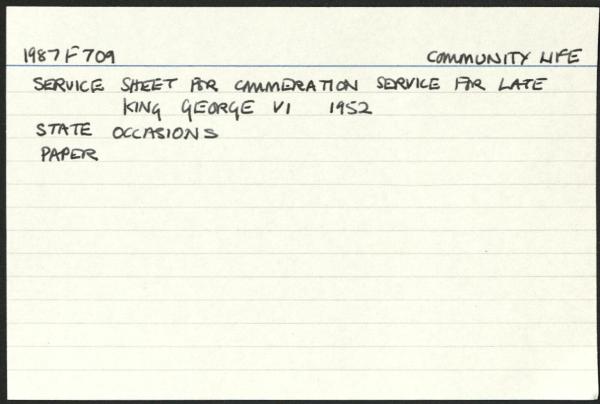 1987 F 709 COMMUNITY LIFE
SERVICE SHEET FOR CMMMERATION SERVICE FOR LATE
KING GEORGE VI 1952
STATE OCCASIONS
PAPER